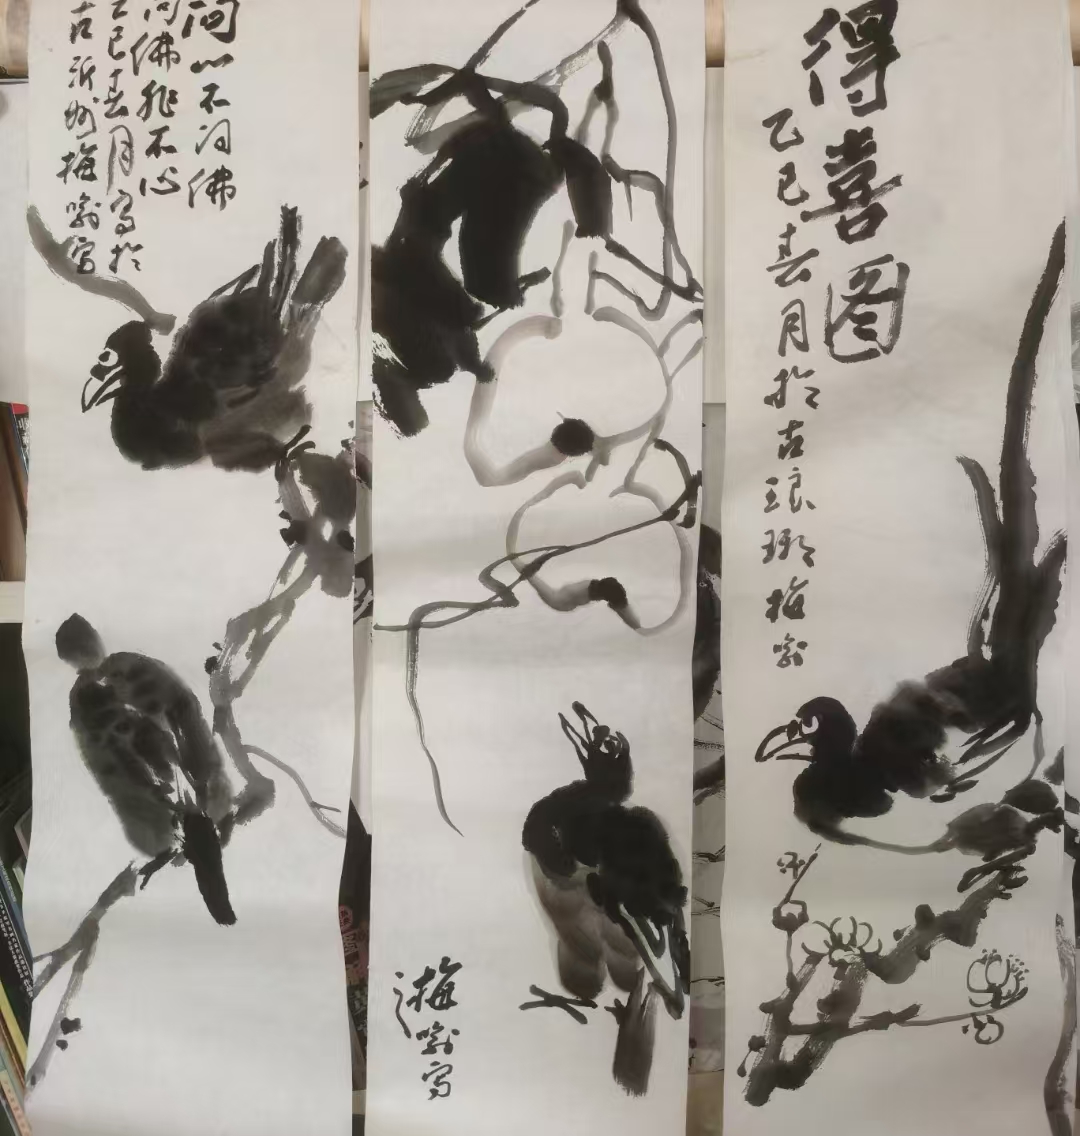 得喜图
乙巳春月於古琅琊梅
梅
写
问心不问佛
问佛非不心
乙巳春月写於
古沂州梅
写